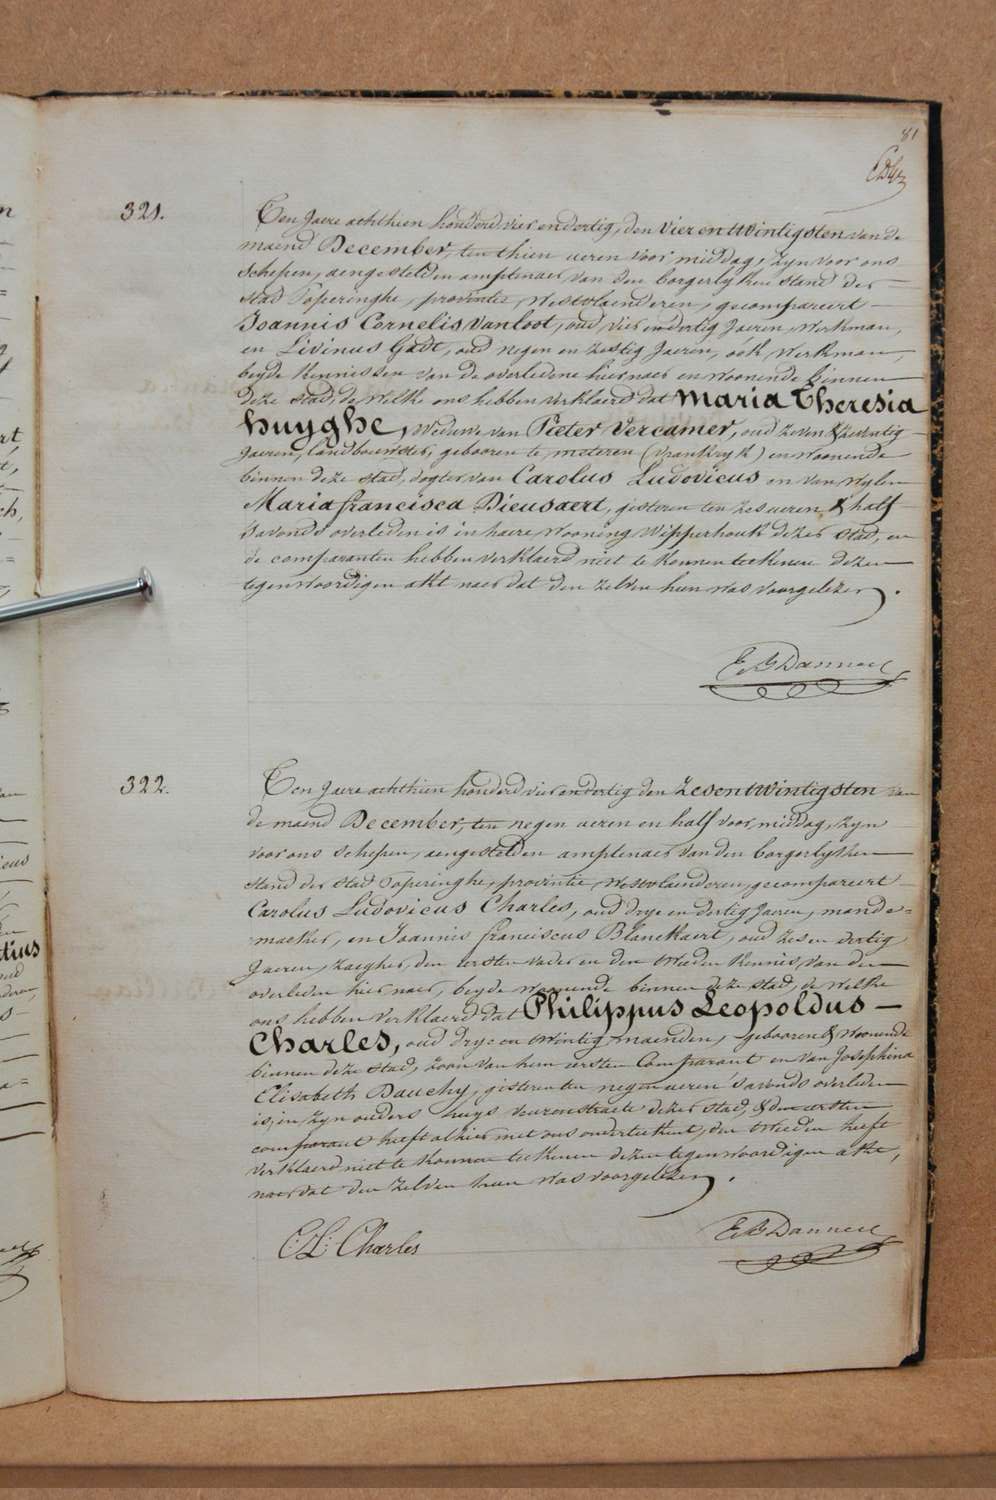 81
321.
Ten Jaere achthien honderd vier en dertig, den vier en twintigsten van de
maend December, ten thien ueren voor middag, zyn voor ons
schepen, aengestelden amptenaer van den borgerlyken stand der
stad Poperinghe, provintie Westvlaenderen, gecompareert
Joannis Cornelis Vanloot, oud vier en dertig Jaeren, Werkman,
en Livinus Gadt, oud negen en zestig Jaeren, óók Werkman,
beyde Kennissen van de overledene hiernaer en woonende binnen
deze stad, de welke ons hebben verklaerd dat Maria Theresia
huyghe, Weduwe van Pieter Vercamer, oud zeven & zeventig
Jaeren, Landbouwster, gebooren te meteren (vrankryk) en woonende
binnen deze stad, dogter van Carolus Ludovicus en van wylen
Maria francisca Dieusaert, gisteren ten zes ueren & half
s'avonds overleden is in haere wooning Wipperhouk dezer stad, en
de comparanten hebben verklaerd niet te konnen teekenen dezen
tegenwoordigen akt naer dat den zelven hun was voorgelezen.
E B Danneel
322.
Ten Jaere achthien honderd vier en dertig den zes en twintigsten van
de maend December, ten negen ueren en half voor middag, zyn
voor ons schepen, aengestelden amptenaer van den borgerlyken
stand der stad Poperinghe, provintie Westvlaenderen, gecompareert
Carolus Ludovicus Charles, oud drye en dertig Jaeren, mande=
maeker, en Joannis franciscus Blanckaert, oud zes en dertig
Jaeren, zaegher, den eersten vader en den tweeden Kennis van den
overleden hier naer, beyde woonende binnen deze stad, de welke
ons hebben verklaerd dat Philippus Leopoldus
Charles, oud drye en twintig maenden, gebooren & woonende
binnen deze stad, zoon van hem eersten Comparant en van Josephina
Elisabeth Bauchy, gisteren ten negen ueren s'avonds overleden
is, in zyn ouders huys veurenstraete dezer stad, & den eersten
comparant heeft alhier met ons onderteekent, den tweeden heeft
verklaerd niet te konnen teekenen dezen tegenwoordigen akte,
naer dat den zelven hun was voorgelezen.
C: L: Charles
E B Danneel